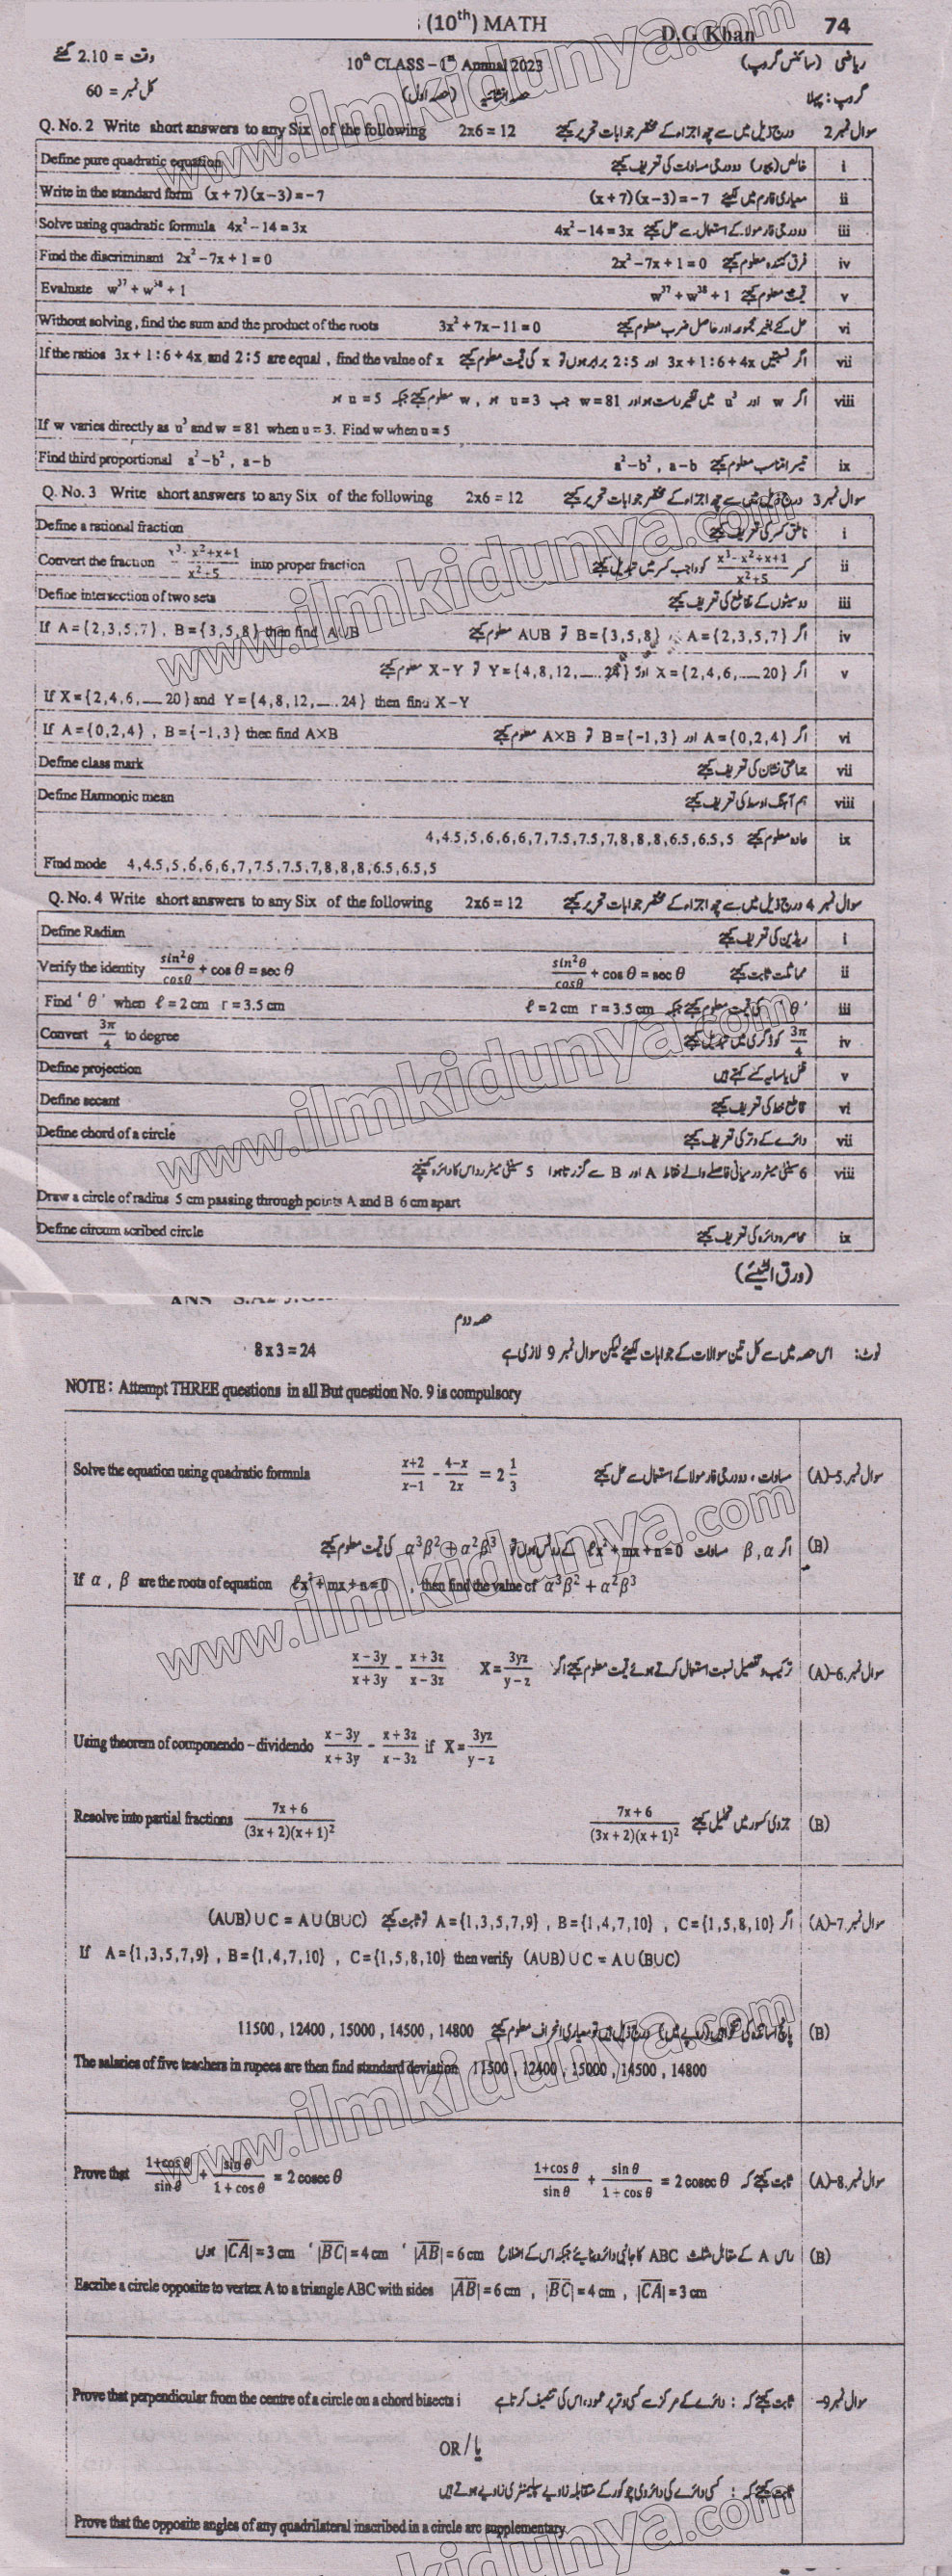 (10th) MATH D.G Khan 74
وقت = 2.10 گھنٹے 10th CLASS – 1st Annual 2023 ریاضی (سائنس گروپ)
کل نمبر = 60 حصہ انشائیہ (حصہ اول) گروپ : پہلا
Q. No. 2 Write short answers to any Six of the following 2x6 = 12 سوال نمبر 2 درج ذیل میں سے چھ اجزاء کے مختصر جوابات تحریر کیجئے
Define pure quadratic equation خالص (پیور) دو درجی مساوات کی تعریف کیجئے i
Write in the standard form (x + 7) (x – 3) = – 7 معیاری فارم میں لکھیئے (x + 7) (x – 3) = – 7 ii
Solve using quadratic formula 4x² – 14 = 3x دو درجی فارمولا کے استعمال سے حل کیجئے 4x² – 14 = 3x iii
Find the discriminant 2x² – 7x + 1 = 0 فرق کنندہ معلوم کیجئے 2x² – 7x + 1 = 0 iv
Evaluate w³⁷ + w³⁸ + 1 قیمت معلوم کیجئے w³⁷ + w³⁸ + 1 v
Without solving , find the sum and the product of the roots 3x² + 7x – 11 = 0 حل کئے بغیر مجموعہ اور حاصل ضرب معلوم کیجئے vi
If the ratios 3x + 1 : 6 + 4x and 2 : 5 are equal , find the value of x اگر نسبتیں 3x + 1 : 6 + 4x اور 2 : 5 برابر ہوں تو x کی قیمت معلوم کیجئے vii
اگر w اور u³ میں تغیر راست ہو اور w = 81 جب u = 3 ہو , w معلوم کیجئے جبکہ u = 5 ہو viii
If w varies directly as u³ and w = 81 when u = 3. Find w when u = 5
Find third proportional a² – b² , a – b تیسرا تناسب معلوم کیجئے a² – b² , a – b ix
Q. No. 3 Write short answers to any Six of the following 2x6 = 12 سوال نمبر 3 درج ذیل میں سے چھ اجزاء کے مختصر جوابات تحریر کیجئے
Define a rational fraction ناطق کسر کی تعریف کیجئے i
Convert the fraction x³ – x²+x+1 / x²+5 into proper fraction کسر x³ – x²+x+1 / x²+5 کو واجب کسر میں تبدیل کیجئے ii
Define intersection of two sets دو سیٹوں کے تقاطع کی تعریف کیجئے iii
If A = {2,3,5,7} , B = {3,5,8} then find AUB اگر A = {2,3,5,7} B = {3,5,8} تو AUB معلوم کیجئے iv
اگر X = {2,4,6, ..... 20} اور Y = {4,8,12, ..... 24} تو X – Y معلوم کیجئے v
If X = {2,4,6, ..... 20} and Y = {4,8,12, ..... 24} then find X – Y
If A = {0,2,4} , B = {–1,3} then find A×B اگر A = {0,2,4} اور B = {–1,3} تو A×B معلوم کیجئے vi
Define class mark جماعتی نشان کی تعریف کیجئے vii
Define Harmonic mean ہم آہنگ اوسط کی تعریف کیجئے viii
عادہ معلوم کیجئے 4,4.5,5,6,6,6,7,7.5,7.5,7,8,8,8,6.5,6.5,5 ix
Find mode 4,4.5,5,6,6,6,7,7.5,7.5,7,8,8,8,6.5,6.5,5
Q. No. 4 Write short answers to any Six of the following 2x6 = 12 سوال نمبر 4 درج ذیل میں سے چھ اجزاء کے مختصر جوابات تحریر کیجئے
Define Radian ریڈین کی تعریف کیجئے i
Verify the identity sin²θ / cosθ + cos θ = sec θ مماثلت ثابت کیجئے sin²θ / cosθ + cos θ = sec θ ii
Find ' θ ' when ℓ = 2 cm r = 3.5 cm ' θ ' کی قیمت معلوم کیجئے جبکہ ℓ = 2 cm r = 3.5 cm iii
Convert 3π / 4 to degree 3π / 4 کو ڈگری میں تبدیل کیجئے iv
Define projection ظل یا سایہ کسے کہتے ہیں v
Define secant قاطع خط کی تعریف کیجئے vi
Define chord of a circle دائرے کے وتر کی تعریف کیجئے vii
6 سینٹی میٹر درمیانی فاصلے والے نقاط A اور B سے گزرتا ہوا 5 سینٹی میٹر رداس کا دائرہ کھینچئے viii
Draw a circle of radius 5 cm passing through points A and B 6 cm apart
Define circum scribed circle محاصرہ دائرہ کی تعریف کیجئے ix
(ورق الٹیئے)
حصہ دوم
8 x 3 = 24 نوٹ: اس حصہ میں سے کل تین سوالات کے جوابات لکھیئے لیکن سوال نمبر 9 لازمی ہے
NOTE : Attempt THREE questions in all But question No. 9 is compulsory
Solve the equation using quadratic formula x+2 / x–1 – 4–x / 2x = 2 1/3 مساوات ، دو درجی فارمولا کے استعمال سے حل کیجئے سوال نمبر 5–(A)
اگر β , α مساوات ℓx² + mx + n = 0 کے روٹس ہوں تو α³β² + α²β³ کی قیمت معلوم کیجئے (B)
If α , β are the roots of equation ℓx² + mx + n = 0 , then find the value of α³β² + α²β³
ترکیب و تفصیل نسبت استعمال کرتے ہوئے قیمت معلوم کیجئے اگر X = 3yz / y – z x – 3y / x + 3y – x + 3z / x – 3z سوال نمبر 6–(A)
Using theorem of componendo – dividendo x – 3y / x + 3y – x + 3z / x – 3z if X = 3yz / y – z
Resolve into partial fractions 7x + 6 / (3x + 2)(x + 1)² جزوی کسور میں تحلیل کیجئے 7x + 6 / (3x + 2)(x + 1)² (B)
اگر A = {1,3,5,7,9} , B = {1,4,7,10} , C = {1,5,8,10} تو ثابت کیجئے (AUB) U C = A U (BUC) سوال نمبر 7–(A)
If A = {1,3,5,7,9} , B = {1,4,7,10} , C = {1,5,8,10} then verify (AUB) U C = A U (BUC)
پانچ اساتذہ کی تنخواہیں (روپے میں) درج ذیل ہیں تو معیاری انحراف معلوم کیجئے 11500 , 12400 , 15000 , 14500 , 14800 (B)
The salaries of five teachers in rupees are then find standard deviation 11500 , 12400 , 15000 , 14500 , 14800
Prove that 1+cos θ / sin θ + sin θ / 1 + cos θ = 2 cosec θ ثابت کیجئے کہ 1+cos θ / sin θ + sin θ / 1 + cos θ = 2 cosec θ سوال نمبر 8–(A)
راس A کے مقابل مثلث ABC کا جانبی دائرہ بنایئے جبکہ اس کے اضلاع |AB| = 6 cm ' |BC| = 4 cm ' |CA| = 3 cm ہوں (B)
Escribe a circle opposite to vertex A to a triangle ABC with sides |AB| = 6 cm , |BC| = 4 cm , |CA| = 3 cm
Prove that perpendicular from the centre of a circle on a chord bisects i ثابت کیجئے کہ : دائرے کے مرکز سے کسی وتر پر عمود، اس کی تنصیف کرتا ہے سوال نمبر 9–
OR / یا
ثابت کیجئے کہ : کسی دائرے کی دائروی چوکور کے متقابلہ زاویے سپلیمنٹری زاویے ہوتے ہیں
Prove that the opposite angles of any quadrilateral inscribed in a circle are supplementary.
www.ilmkidunya.com
www.ilmkidunya.com
www.ilmkidunya.com
www.ilmkidunya.com
www.ilmkidunya.com
www.ilmkidunya.com